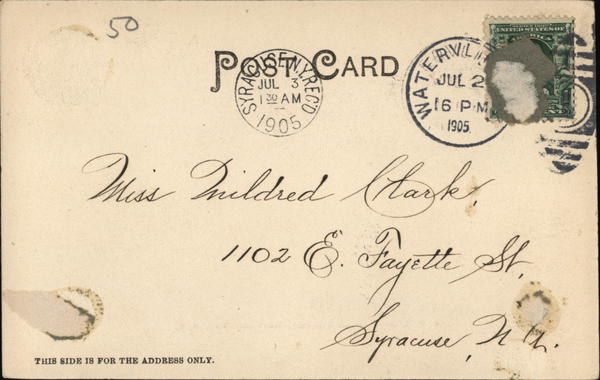 50
POST CARD
SYRACUSE, N.Y. REC'D
JUL 3
1 30 AM
1905
JUL 2
6 PM
1905
UNITED STATES OF
Miss Mildred Clark,
1102 E. Fayette St.
Syracuse, N.Y.
THIS SIDE IS FOR THE ADDRESS ONLY.